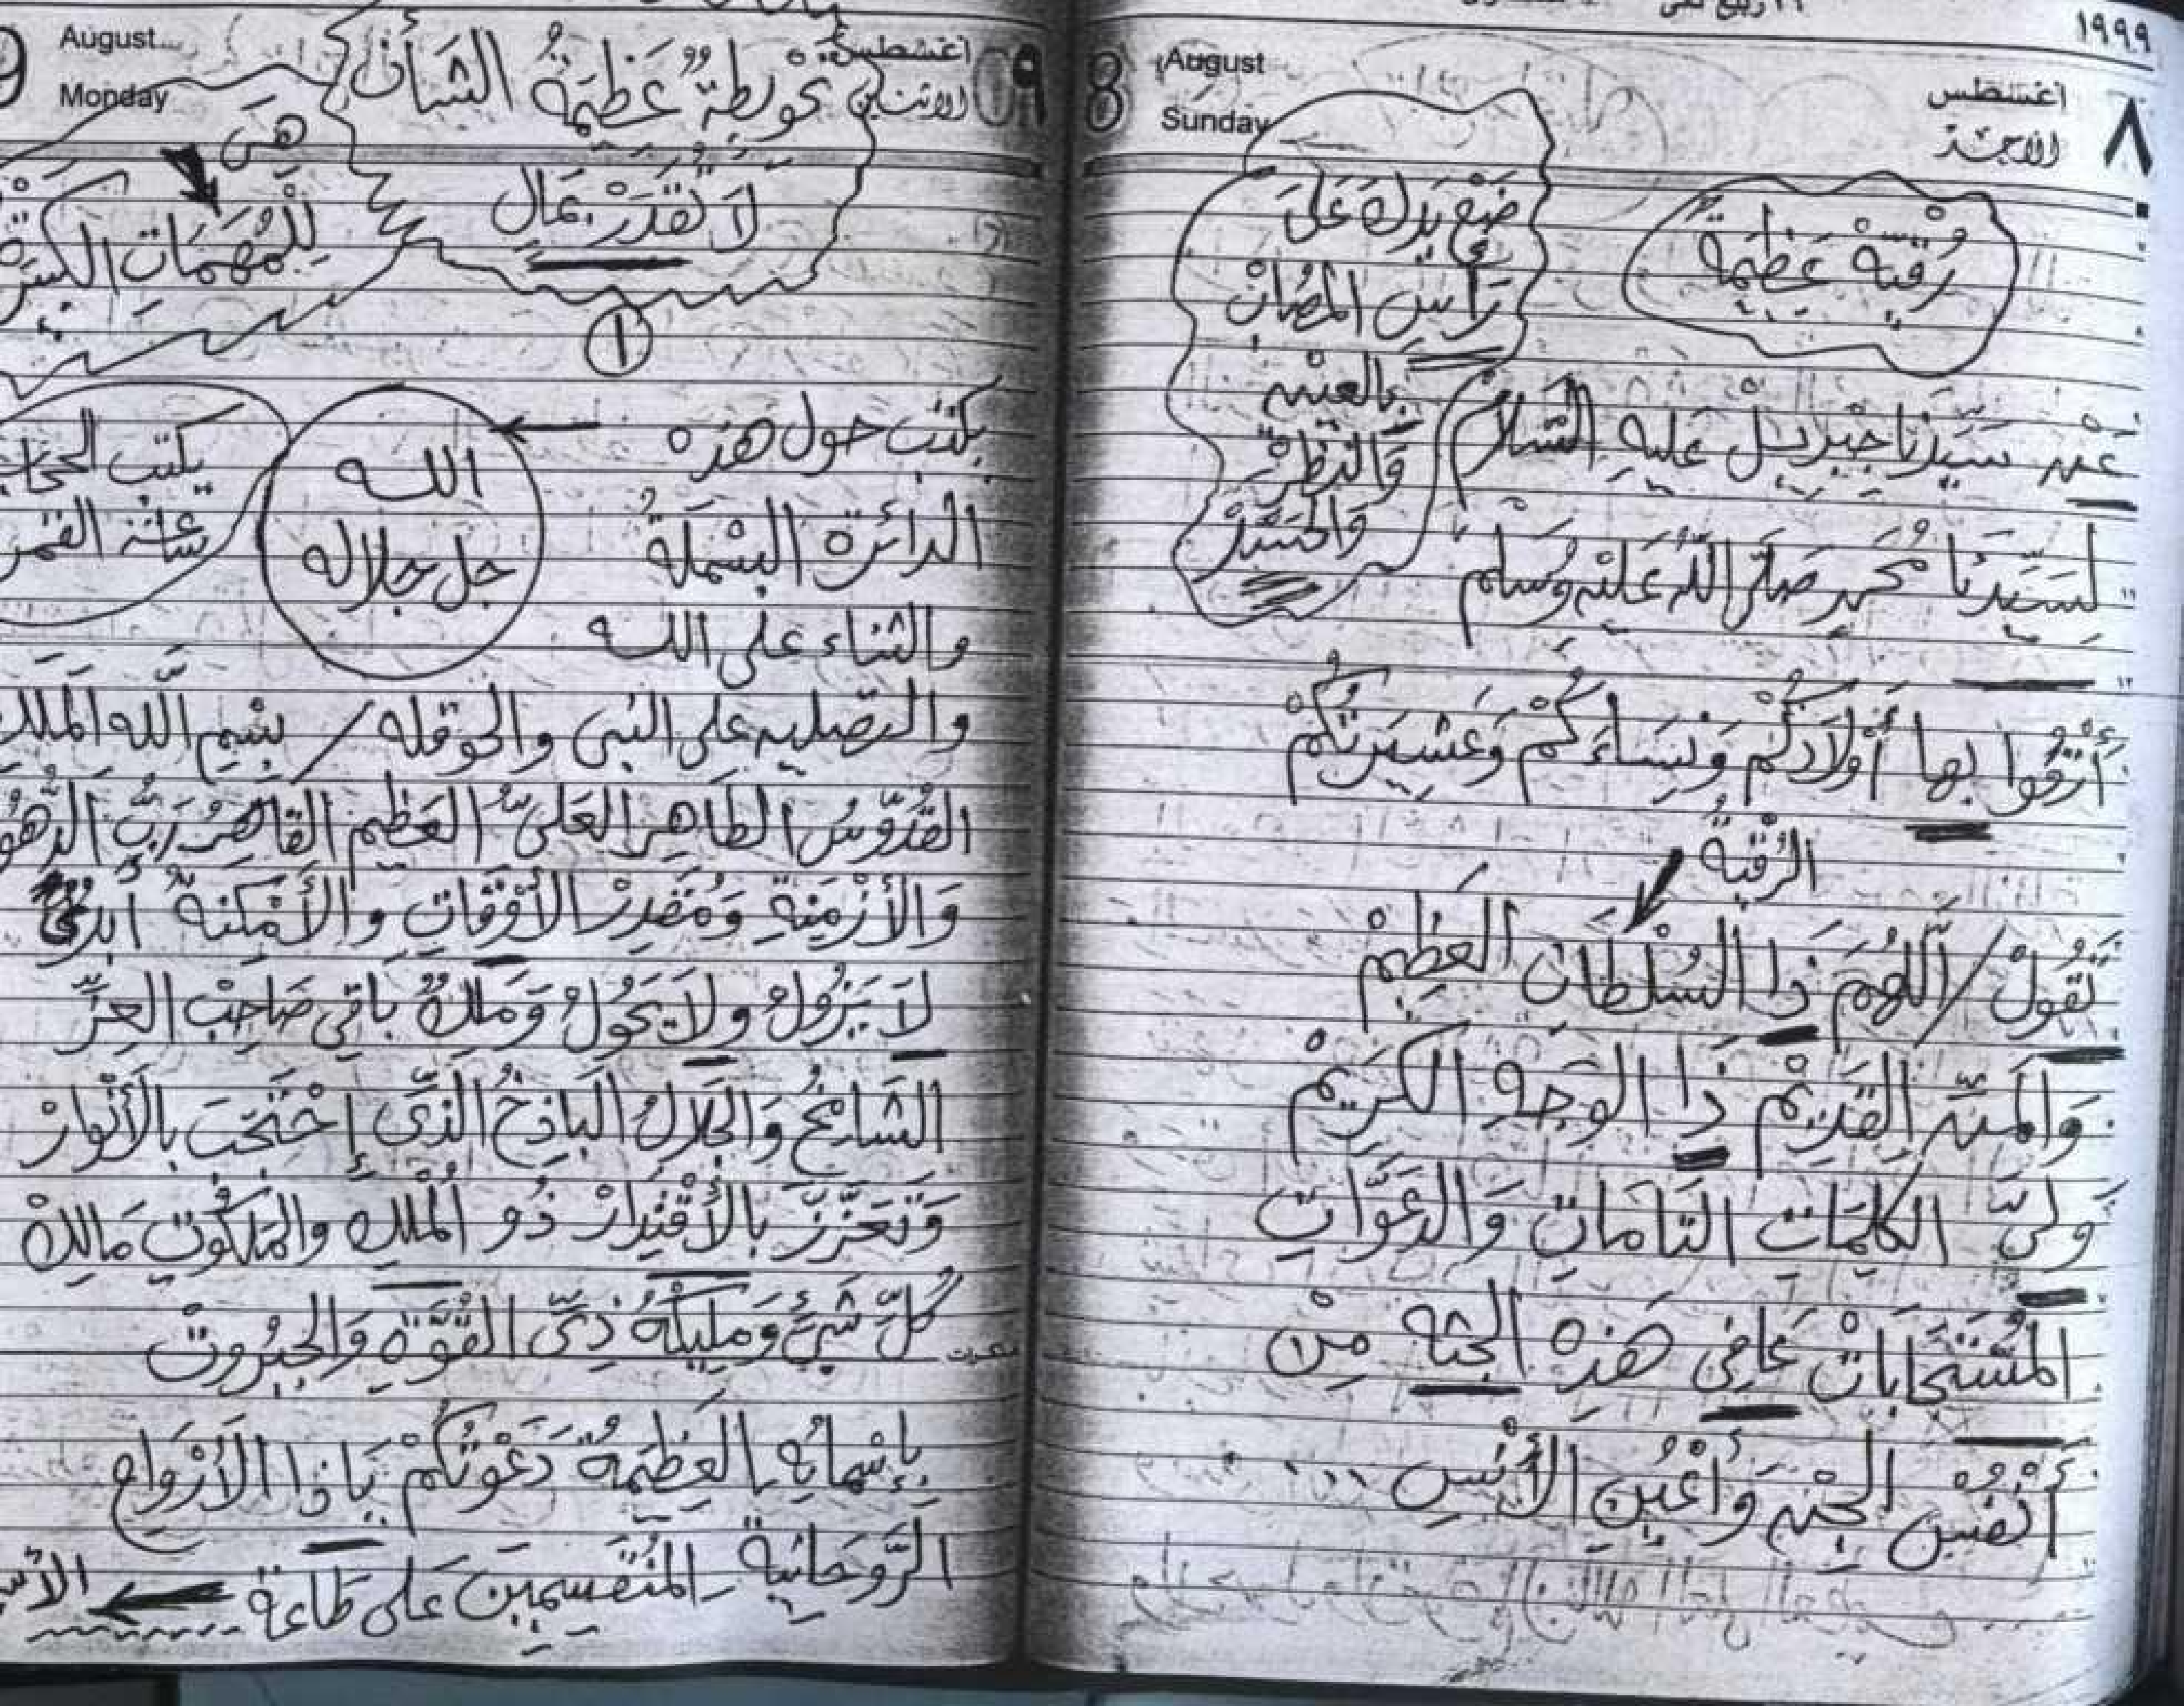 ١٩٩٩
August
Sunday
8
أغسطس
الأحد
٨
رُقْيَةْ عَظِيمَة
ضَعْ يَدِكَ عَلَى
رَأْسِ المُصَابْ
بِالعَيْنِ
وَالنَّظْرَة
وَالحَسَدْ
عَنْ سَيِّدِنَا جِبْرِيلْ عَلَيهِ السَّلَامْ
لِسَيِّدِنَا مُحَمَّدٍ صَلَّى اللَّهُ عَلَيْهِ وَسَلَّمْ
أَرْقُوا بِهَا أَوْلَادَكُمْ وَنِسَاءَكُمْ وَعَشِيرَتَكُمْ
الرُّقْيَةُ
تَقُولْ / اللَّهُمَّ ذَا السُلْطَانِ العَظِيمْ
وَالمَنِّ القَدِيمْ ذَا الوَجْهِ الكَرِيمْ
وَلِيّ الكَلِمَاتِ التَّامَاتِ وَالدَعَوَاتِ
المُسْتَجَابَاتْ عَافِى هَذِهِ الجُثَّهِ مِنْ
أَنْفُسِ الجِنِّ وَأَعْيُنِ الأَنْسِ
August
Monday
9
أغسطس
الاثنين
٩
تَحْوِيطَةٌ عَظِيمَةُ الشَأْن
لَا تُقَدَّرْ بِمَالِ
هِىَ
لِلْمُهِمَّاتِ
١
يكتب حول هذه
الدائرة البسْمَلَةُ
والثناء على الله
الله
جل جلاله
يكتب
ساعة القمر
والتصليه على النبى والحوقله / بِسْمِ اللَّه المَلِك
القُدُّوسُ الطَّاهِر العَلىّ العَظِيم القَاهِرُ رَبُّ
وَالأَزْمِنَةِ وَمُقَدِرْ الأَوْقَاتِ وَالأَمْكِنَة
لَا يَزُولُ وَلَا يَحُولُ وَمَلِكٌ بَاقِى صَاحِبْ العِزِّ
الشَامِخُ وَالجَلَالُ البَاذِخُ الَّذِى إِحْتَجَبَ بِالأَنْوَارْ
وَتَعَزَّزَ بِالأَقْتِدَارْ ذُو المُلْكِ وَالمَلَكُوتِ مَالِكْ
كُلِّ شَىْءٍ وَمَلِيكَهُ ذِى القُوَّةِ وَالجَبَرُوتْ
بِإِسْمَائِهِ العَظِيمَةُ دَعَوْتُكُمْ يَاذَا الأَرْوَاحِ
الرَّوحَانِيَةِ المُنْقَسِمِينَ عَلَى طَاعَةِ